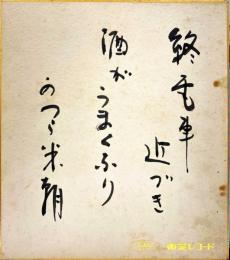 終電車
近づき
酒が
うまくなり
かつら米朝
東芝レコード